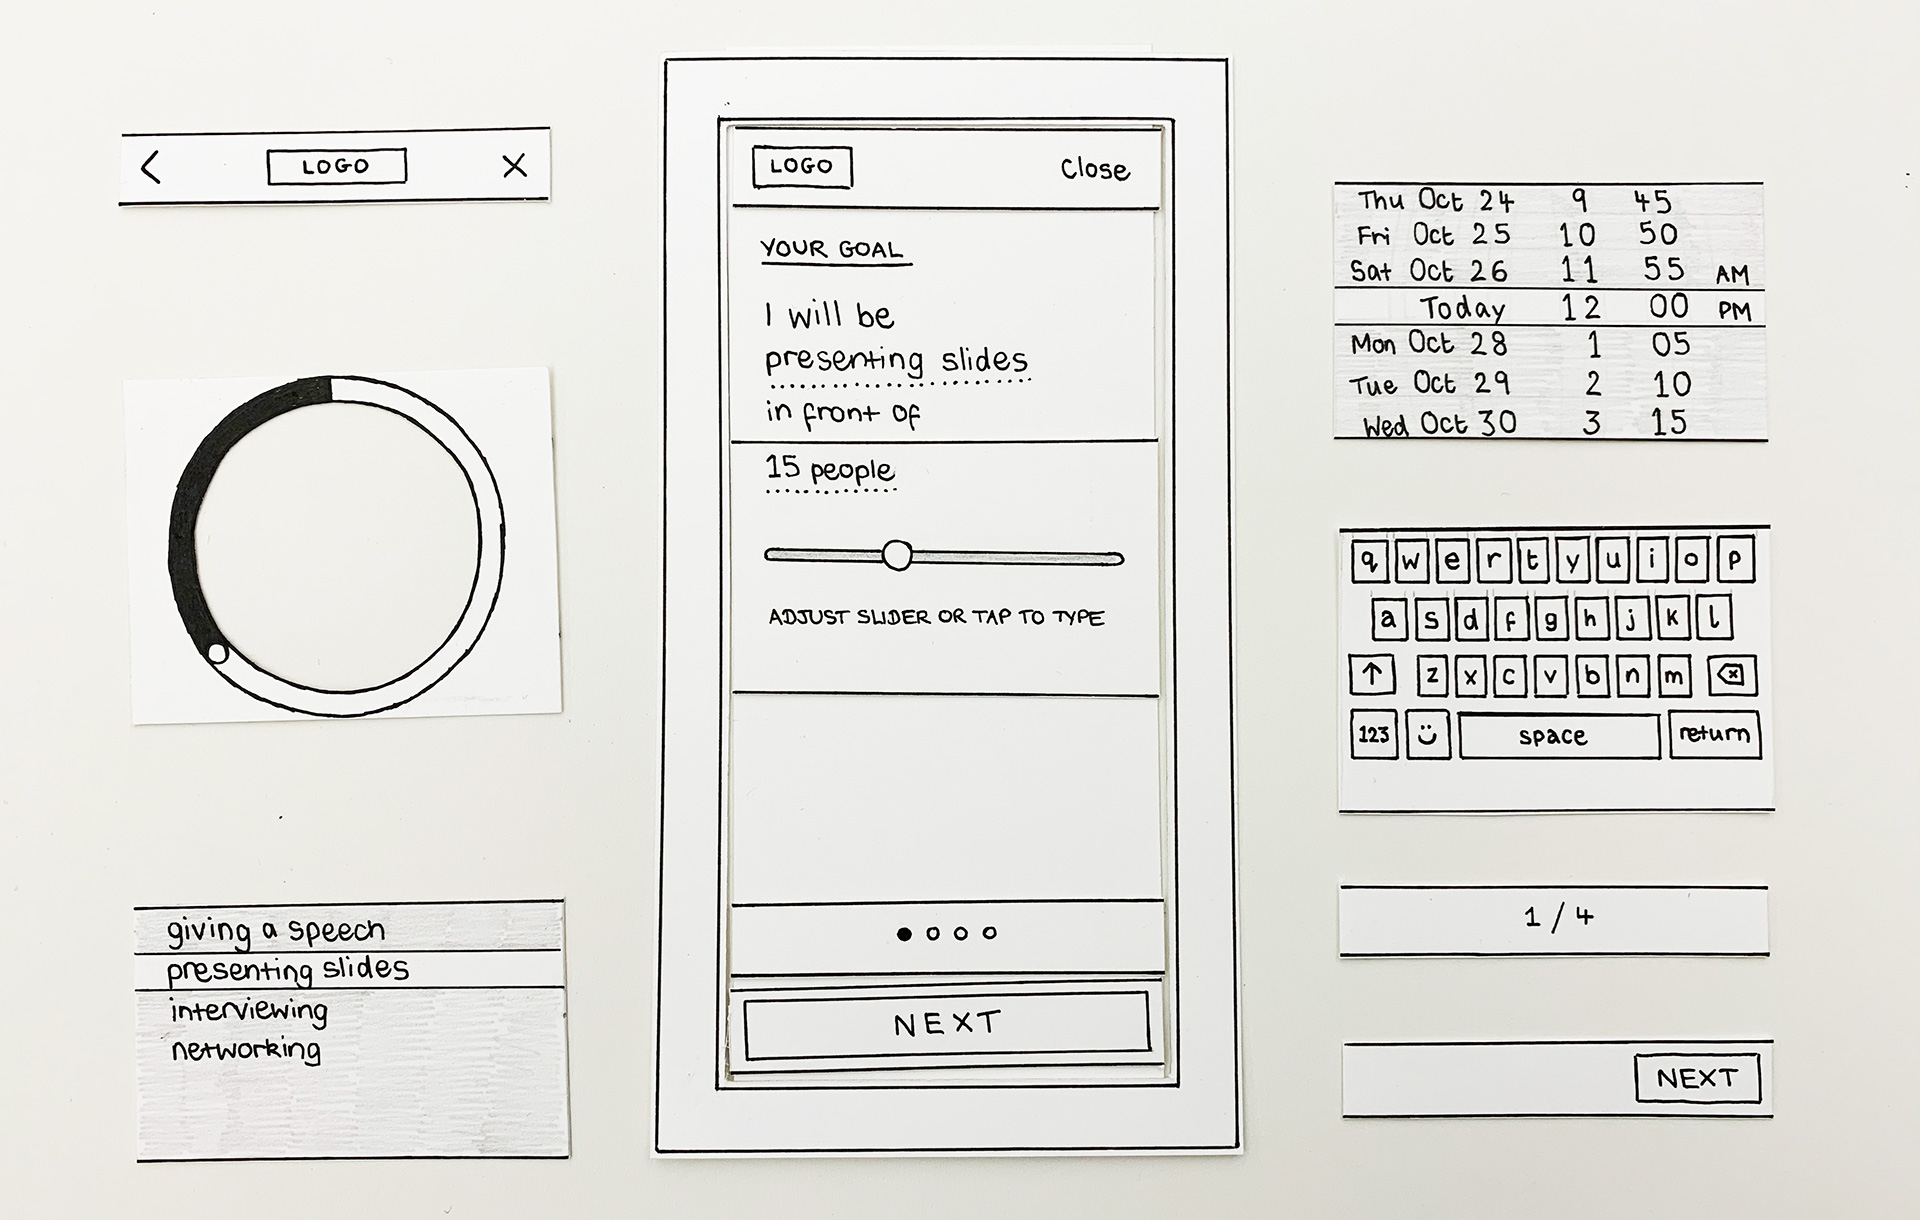 LOGO
giving a speech
presenting slides
interviewing
networking
LOGO Close
YOUR GOAL
I will be
presenting slides
in front of
15 people
ADJUST SLIDER OR TAP TO TYPE
NEXT
Thu Oct 24 9 45
Fri Oct 25 10 50
Sat Oct 26 11 55 AM
Today 12 00 PM
Mon Oct 28 1 05
Tue Oct 29 2 10
Wed Oct 30 3 15
q w e r t y u i o p
a s d f g h j k l
z x c v b n m
123 space return
1 / 4
NEXT